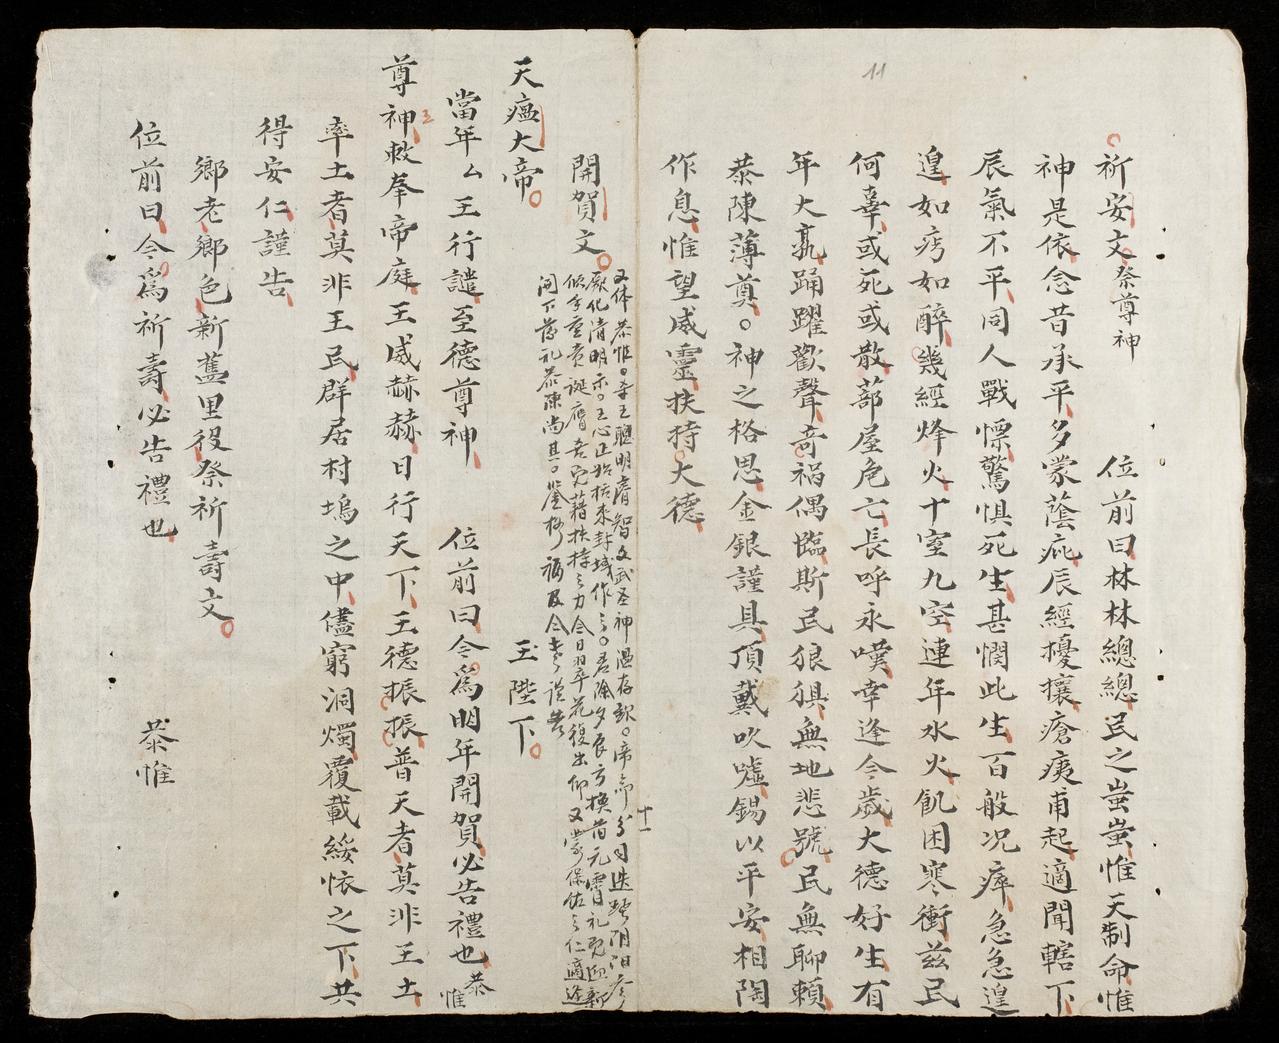 11
祈安文 祭尊神 位前曰林林總總民之蚩蚩惟天制命惟
神是依念昔承平多蒙蔭庇辰經擾攘瘡痍甫起適聞轄下
辰氣不平同人戰慄驚惧死生甚憫此生百般况瘴急急遑
遑如疞如醉幾經烽火十室九空連年水火飢困寒衝兹民
何辜或死或散蔀屋危亡長呼永嘆幸逢今歲大德好生有
年大孰踊躍歡聲竒禍偶臨斯民狼狽無地悲號民無聊賴
恭陳薄奠神之格思金銀謹具頂戴吹噓錫以平安相陶
作息惟望威靈扶持大德
十一
開賀文
又体恭惟王聰明睿智文武聖神
天瘟大帝 玉陛下
當年厶王行譴至德尊神 位前曰今爲明年開賀必告禮也恭惟
尊神敕奉帝庭王威赫赫日行天下王德振振普天者莫非王土
率土者莫非王民群居村塢之中儘窮洞燭覆載綏懷之下共
得安仁謹告
鄉老鄉色新舊里役祭祈壽文
位前曰今爲祈壽必告禮也 恭惟